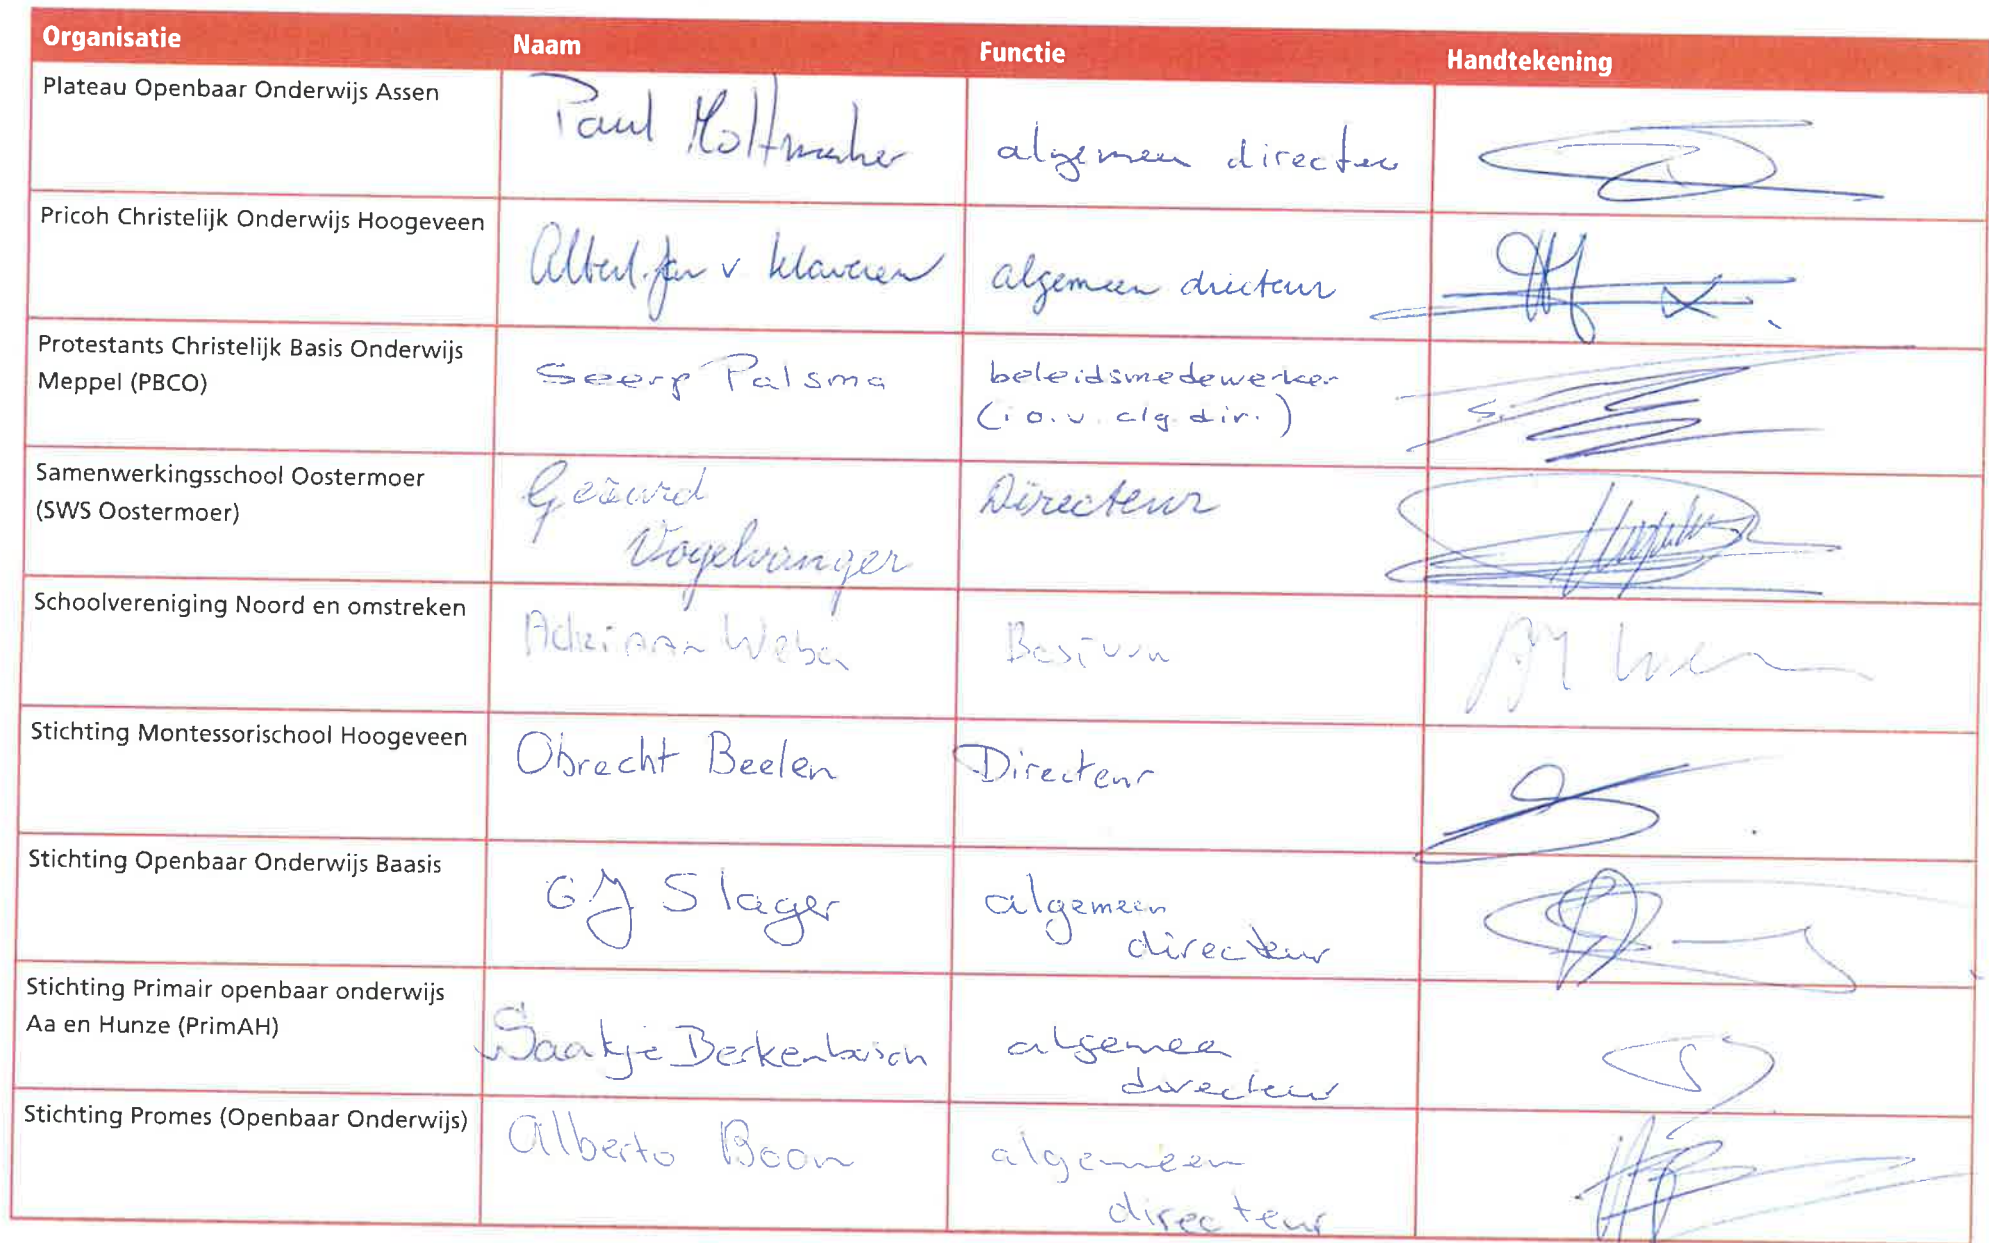 Organisatie Naam Functie Handtekening
Plateau Openbaar Onderwijs Assen Paul algemeen directeur
Pricoh Christelijk Onderwijs Hoogeveen Albert-Jan v Klaveren algemeen directeur
Protestants Christelijk Basis Onderwijs Seerp Palsma beleidsmedewerker
Meppel (PBCO) (i.o.v. alg. dir.)
Samenwerkingsschool Oostermoer Directeur
(SWS Oostermoer) Vogelvanger
Schoolvereniging Noord en omstreken Adriaan Weber Bestuur
Stichting Montessorischool Hoogeveen Obrecht Beelen Directeur
Stichting Openbaar Onderwijs Baasis GJ Slager algemeen
directeur
Stichting Primair openbaar onderwijs Saakje Berkenbosch algemeen
Aa en Hunze (PrimAH) directeur
Stichting Promes (Openbaar Onderwijs) Alberto Boon algemeen
directeur